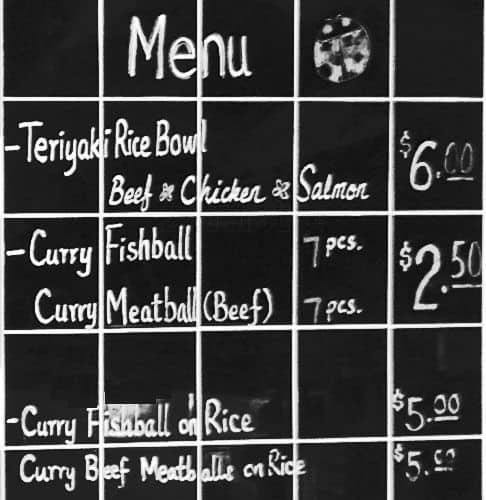 Menu
-Teriyaki Rice Bowl
Beef & Chicken & Salmon $6.00
-Curry Fishball 7 pcs.
Curry Meatball (Beef) 7 pcs. $2.50
-Curry Fishball on Rice $5.00
Curry Beef Meatballs on Rice $5.00